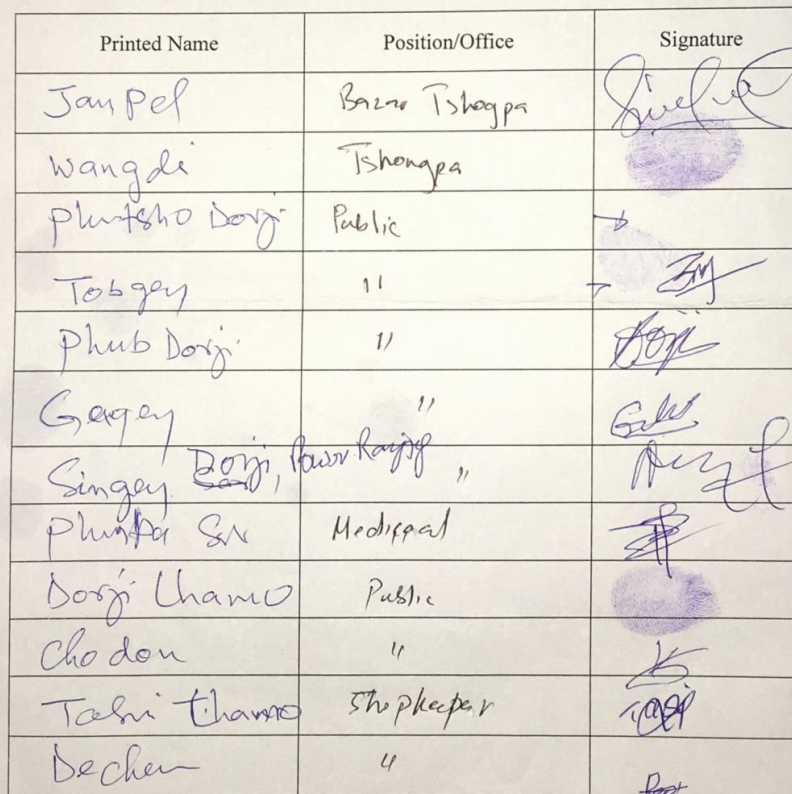 Printed Name Position/Office Signature
Janpel Bazar Tshogpa
Wangdi Tshongpa
Phuntsho Dorji Public
Tobgey "
Phub Dorji "
Gengey " 
Singey Dorji, "
Phunpa Medicpal
Dorji Lhamo Public
Chodon "
Tashi Lhamo Shopkeeper
Dechen "